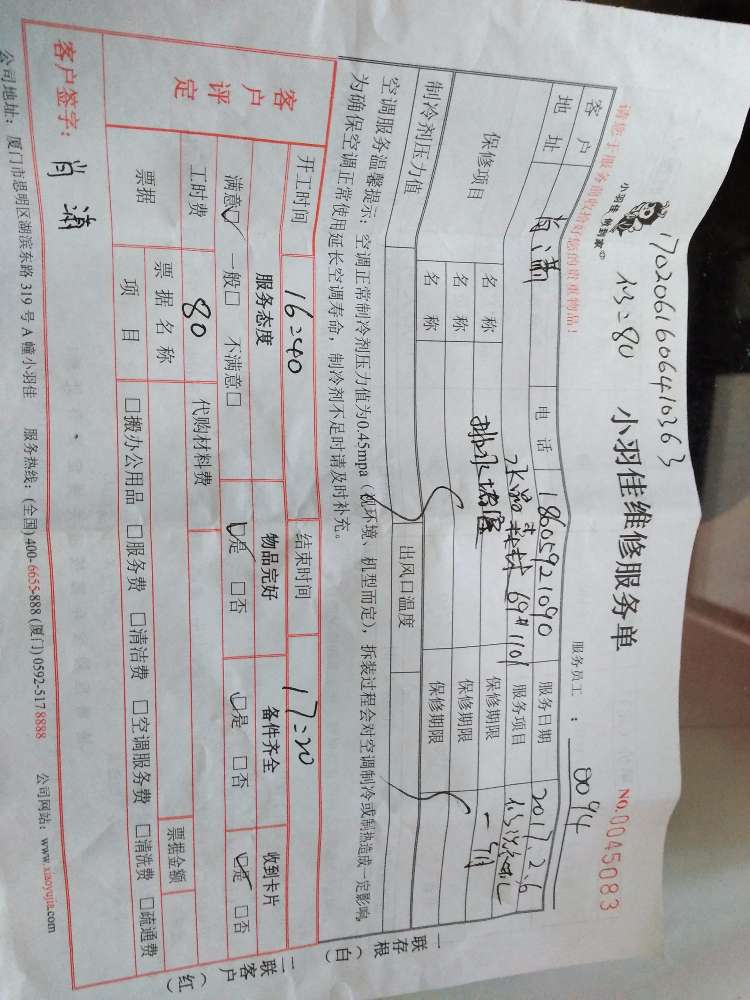 请您于服务前收拾好您的贵重物品!
17020616060410363
小羽佳 帮到家
修:80
小羽佳维修服务单
服务员工: 8094
NO.0045083
客户 肖潇 电话 18605921090 服务日期 2017.2.6
地址 69#1101 服务项目
保修项目 名称 排水堵塞 保修期限 一年
名称 保修期限
名称 保修期限
制冷剂压力值 出风口温度
空调服务温馨提示:空调正常制冷剂压力值为0.45mpa(视环境、机型而定),拆装过程会对空调制冷或制热造成一定影响,
为确保空调正常使用延长空调寿命,制冷剂不足时请及时补充。
开工时间 16:40 结束时间 17:20
客户评定
服务态度 物品完好 备件齐全 收到卡片
满意☑ 一般□ 不满意□ ☑是 □否 ☑是 □否 ☑是 □否
工时费 80 代购材料费
票据 票据名称 票据金额
项目 □搬办公用品 □服务费 □清洁费 □空调服务费 □清洗费 □疏通费
客户签字: 肖潇
公司地址:厦门市思明区湖滨东路319号A幢小羽佳 服务热线:(全国)400-6655-888 (厦门)0592-5178888 公司网站:www.xiaoyujia.com
一联存根(白)
二联客户(红)